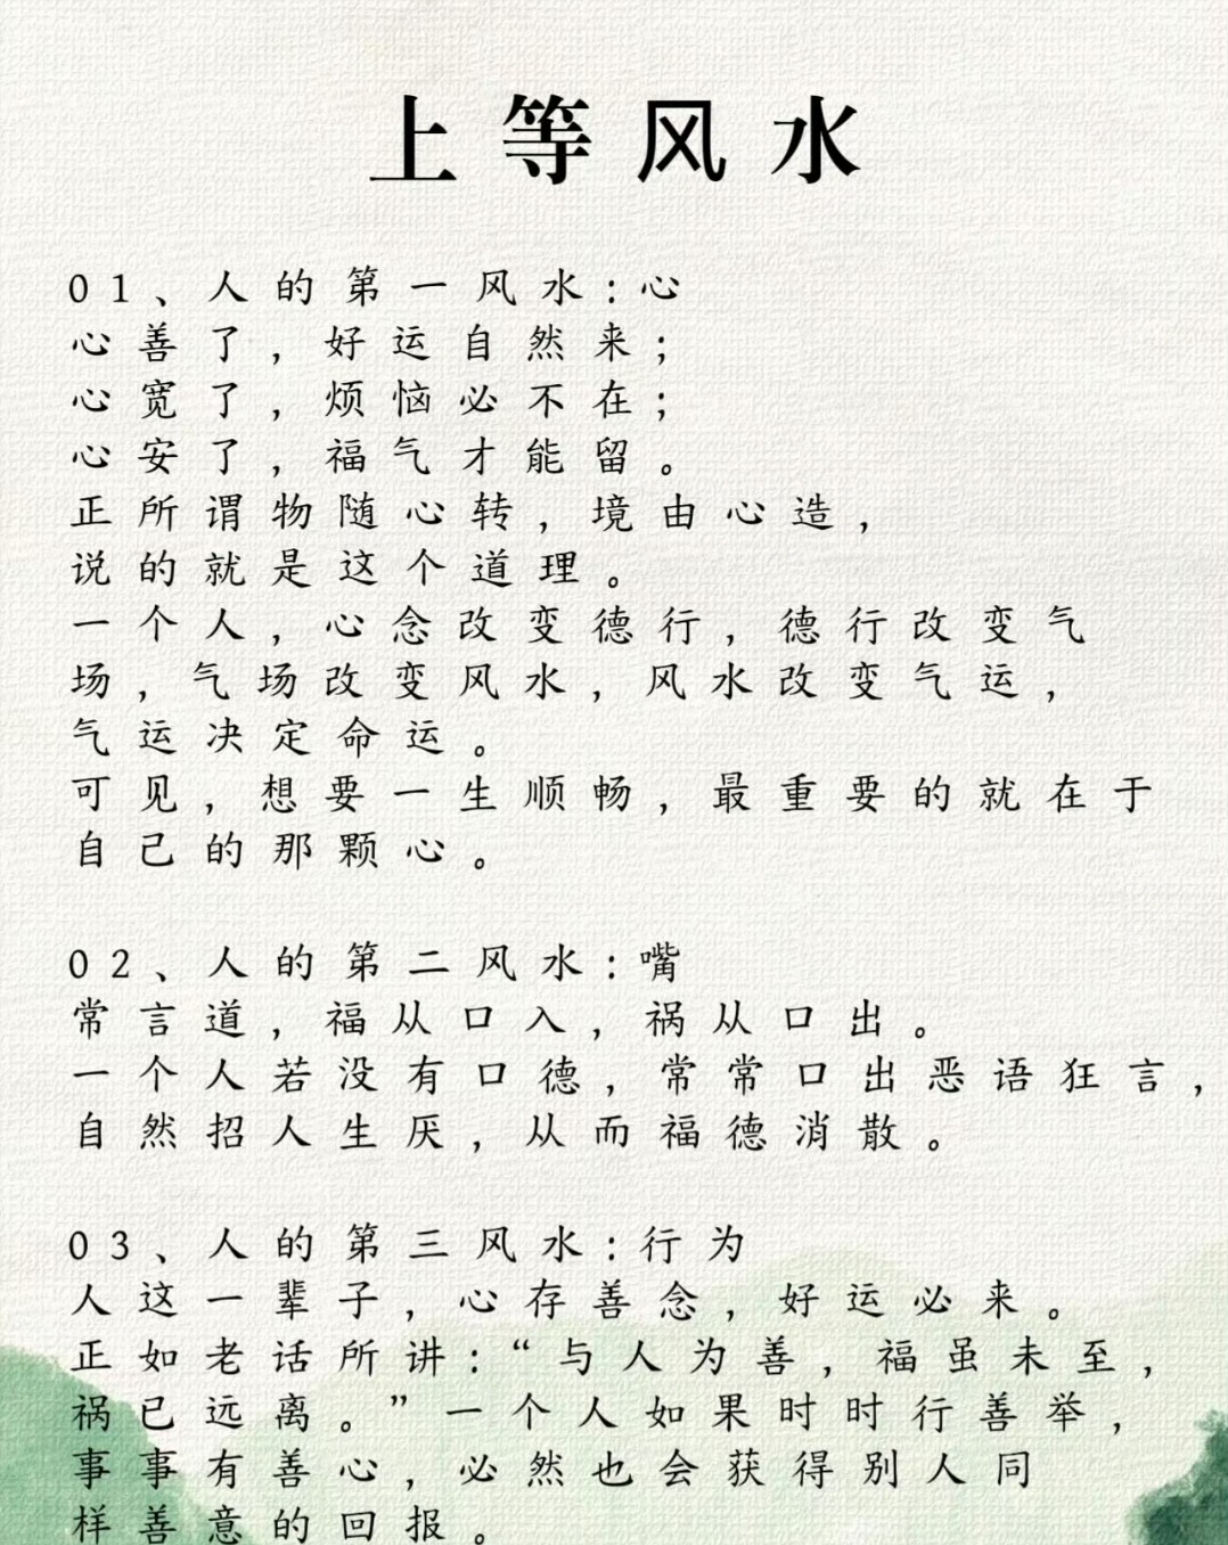 上等风水
01、人的第一风水:心
心善了,好运自然来;
心宽了,烦恼必不在;
心安了,福气才能留。
正所谓物随心转,境由心造,
说的就是这个道理。
一个人,心念改变德行,德行改变气
场,气场改变风水,风水改变气运,
气运决定命运。
可见,想要一生顺畅,最重要的就在于
自己的那颗心。
02、人的第二风水:嘴
常言道,福从口入,祸从口出。
一个人若没有口德,常常口出恶语狂言,
自然招人生厌,从而福德消散。
03、人的第三风水:行为
人这一辈子,心存善念,好运必来。
正如老话所讲:“与人为善,福虽未至,
祸已远离。”一个人如果时时行善举,
事事有善心,必然也会获得别人同
样善意的回报。